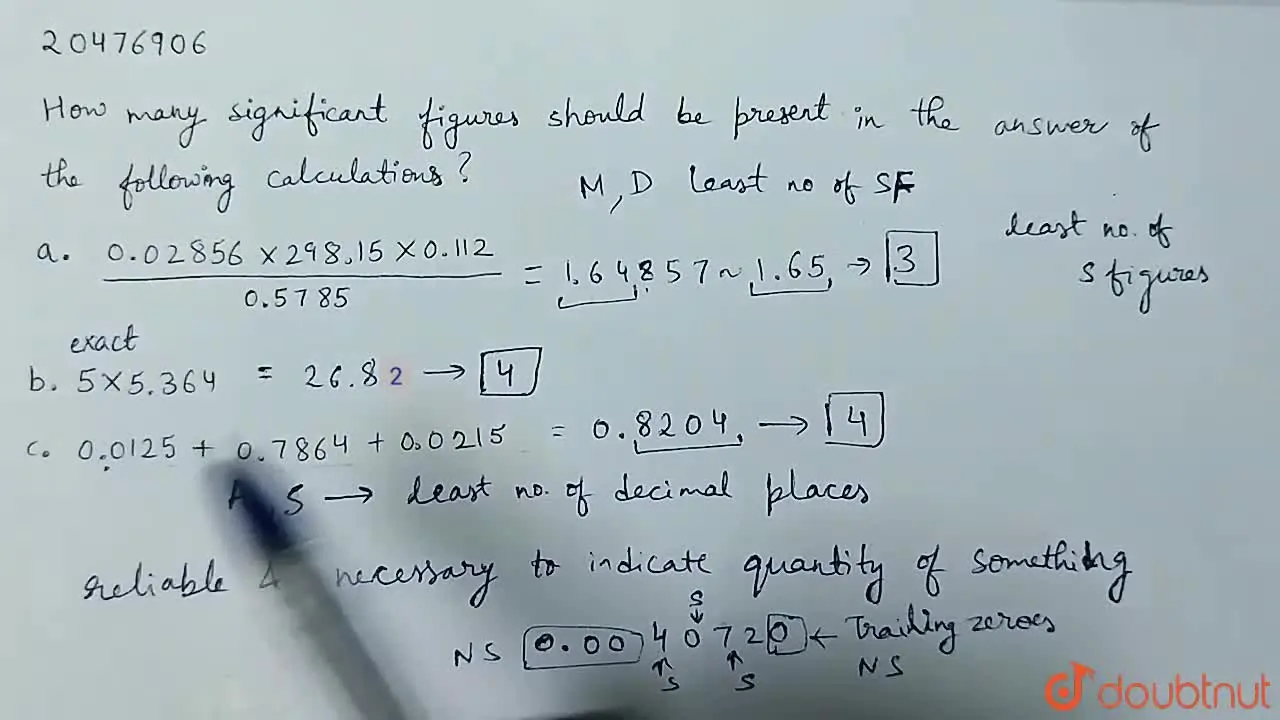 20476906
How many significant figures should be present in the answer of
the following calculations?
M, D least no of SF
least no. of
S figures
a. 0.02856 × 298.15 × 0.112
0.5785
= 1.64857 ~ 1.65 → 3
exact
b. 5 × 5.364 = 26.82 → 4
c. 0.0125 + 0.7864 + 0.0215 = 0.8204 → 4
A, S → least no. of decimal places
reliable & necessary to indicate quantity of something
S
NS 0.00 4 0 7 2 0 ← Trailing zeroes
S S NS
doubtnut